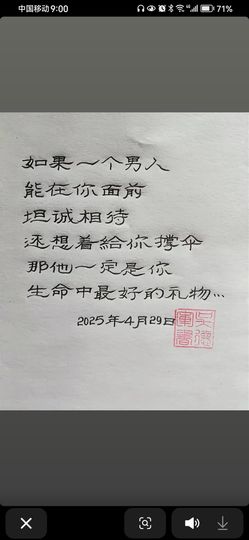 中国移动 9:00
71%
如果一个男人
能在你面前
坦诚相待
还想着給你撑伞
那他一定是你
生命中最好的礼物…
2025年4月29日